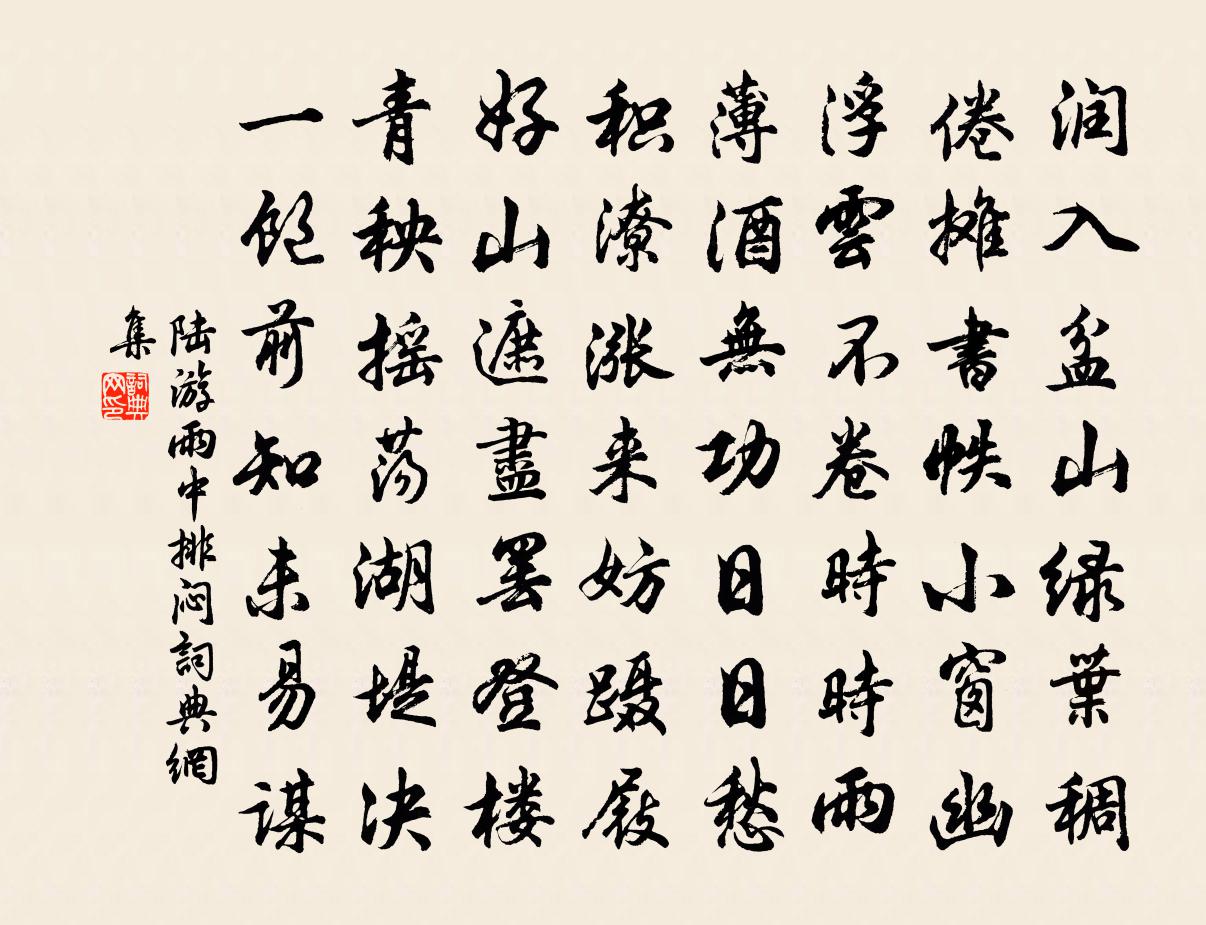 润入盆山绿葉稠
倦摊書帙小窗幽
浮雲不卷時時雨
薄酒無功日日愁
积潦漲来妨蹑屐
好山遮盡罢登楼
青秧摇荡湖堤决
一飽前知未易谋
陆游雨中排闷詞典網
集
詞典
网印